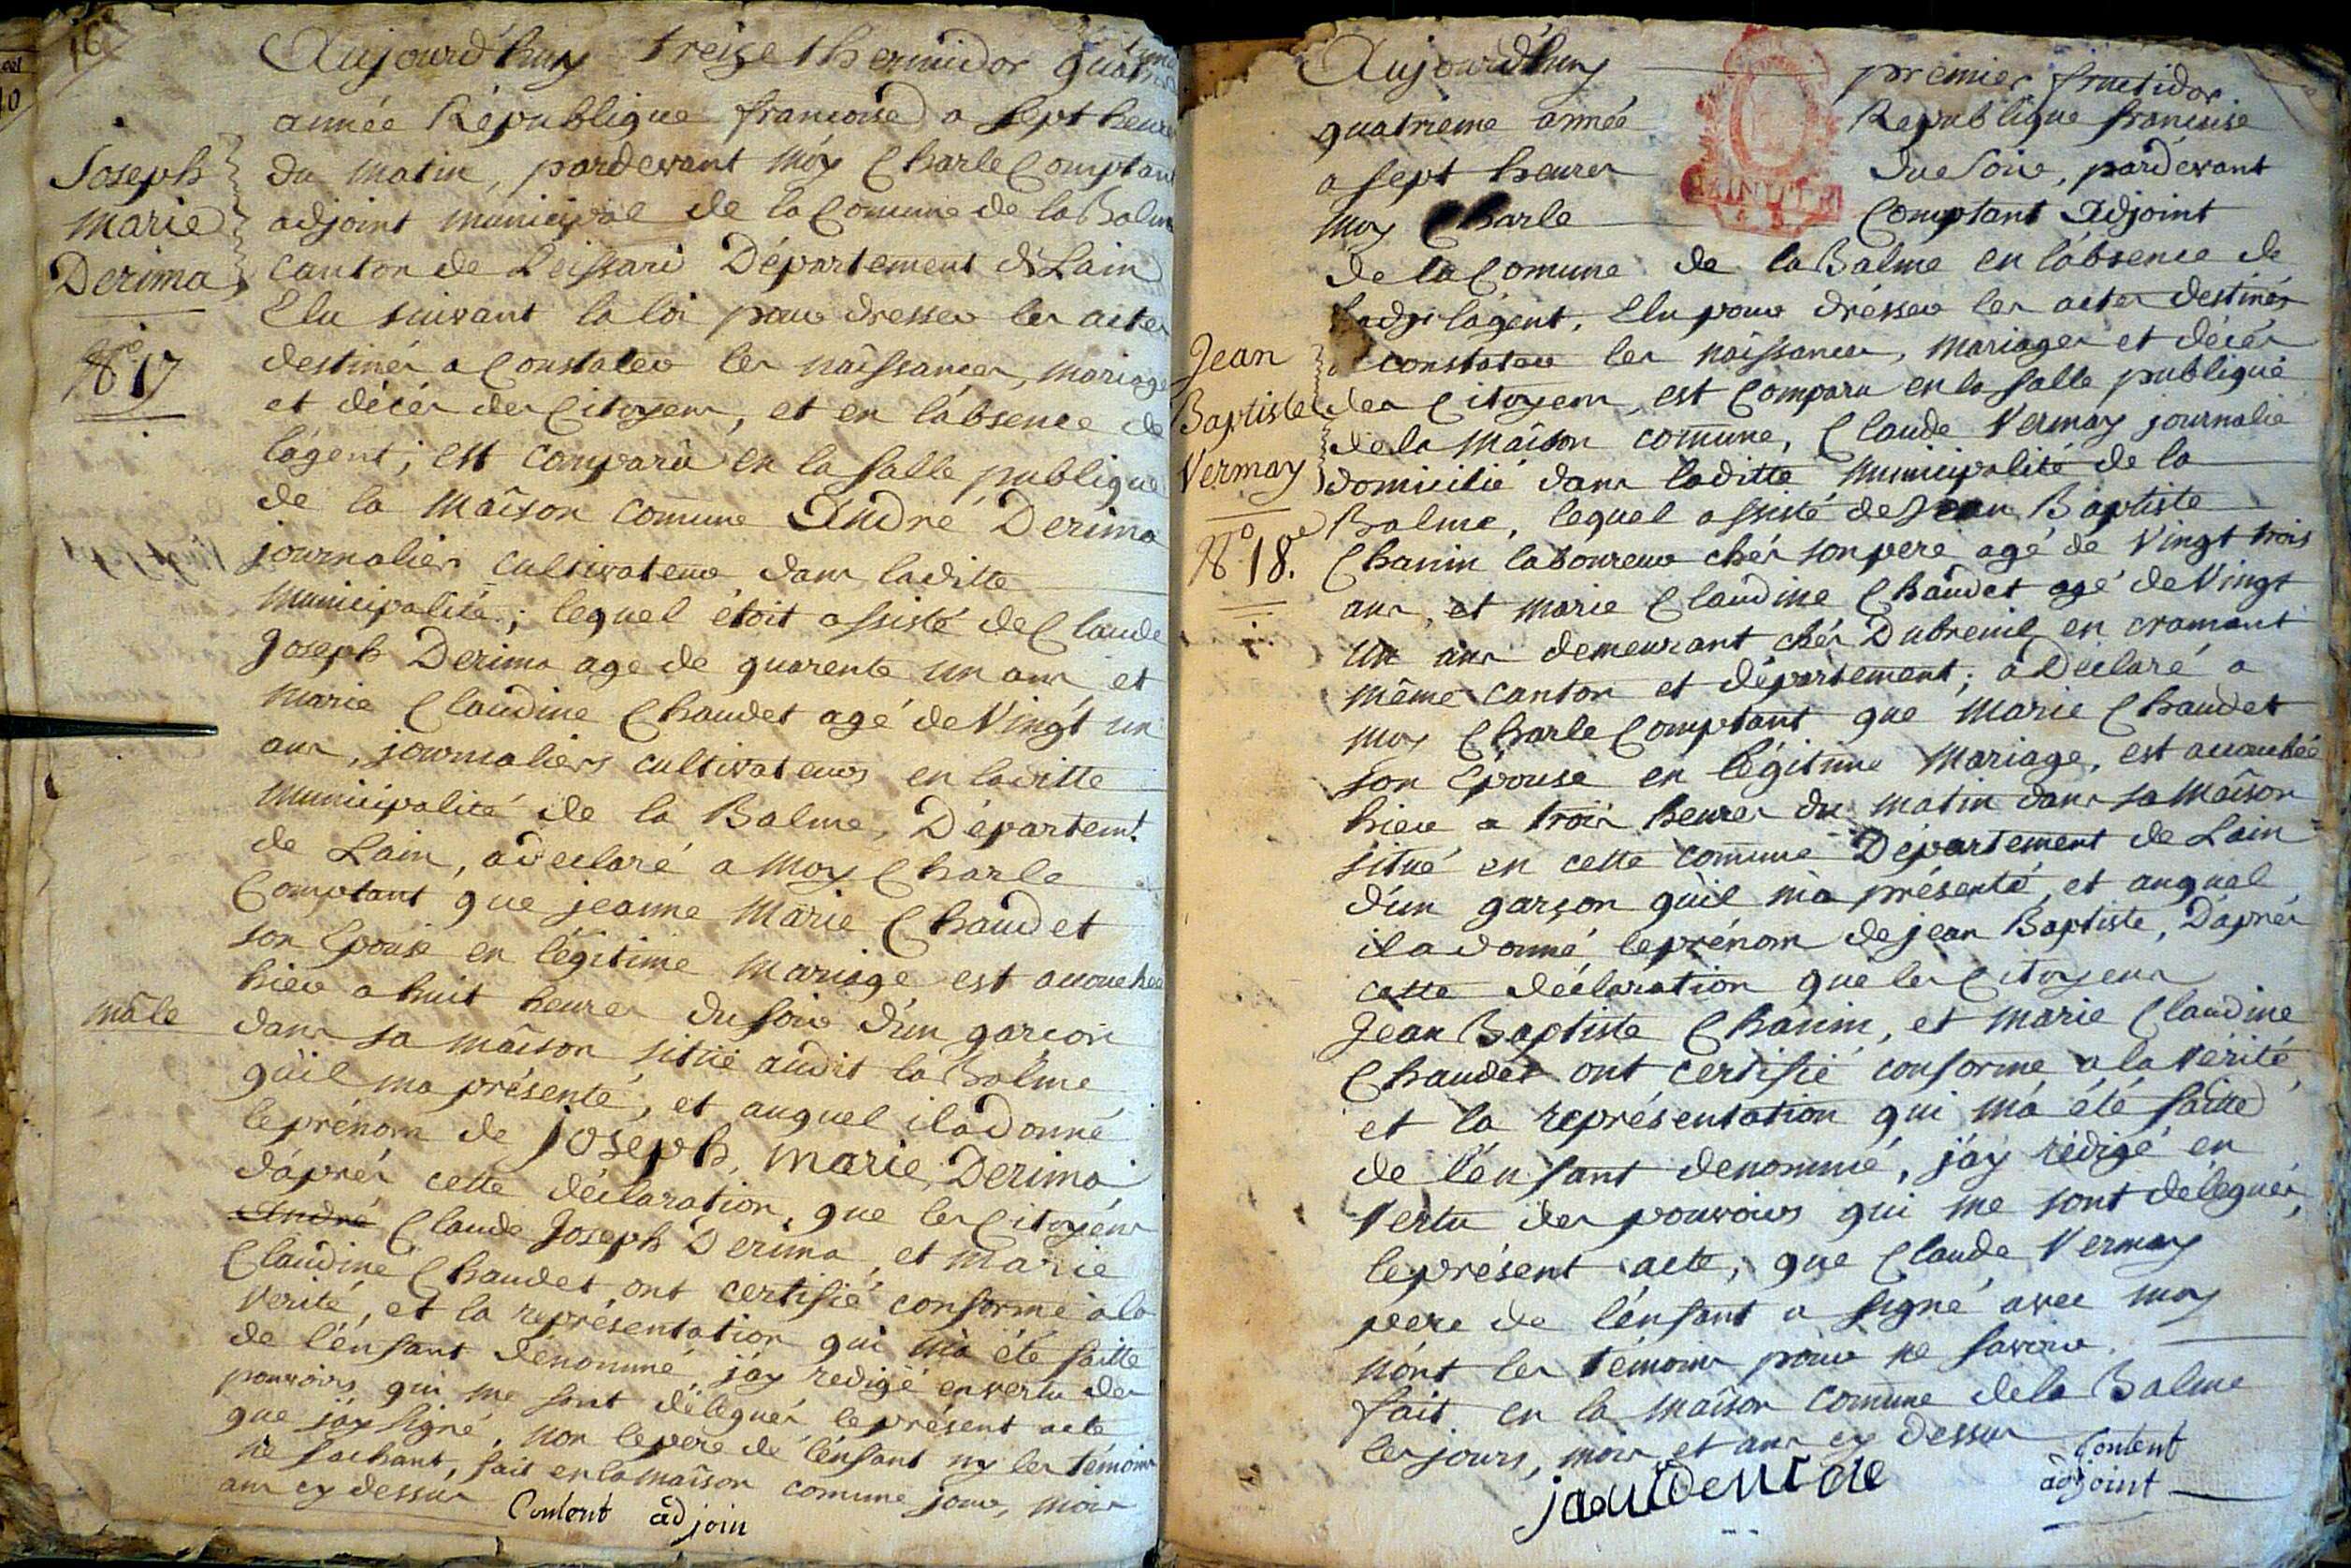 16
Aujourd'huy treize thermidor quatrieme
année Republique francoise a sept heures
Joseph
Marie
Derima
du matin, pardevant moy Charle Comptant
adjoint municipal de la Comune de la Balme
canton de Leissard Département de Lain
Elu suivant la loi pour dresser les actes
N.º 17
destinés a Constater les naissances, mariages
et décés des Citoyens, et en l'absence de
l'agent; est comparû en la salle publique
de la Maison comune André Derima
journalier cultivateur dans laditte
Municipalité; lequel étoit assisté de Claude
Joseph Derima age de quarente un ans, et
Marie Claudine Chaudet agé de Vingt un
ans, journaliers cultivateurs en laditte
Municipalité de la Balme, Département
de Lain, a declaré a Moy Charle
Comptant que jeanne Marie Chaudet
son Epouse en légitime Mariage est accouchée
hier a huit heures du soir d'un garcon
mâle
dans sa maison situé audit la Balme
qu'il ma présenté, et auquel il a donné
le prénom de joseph, marie, Derima,
d'aprés cette déclaration, que les Citoyens
André Claude Joseph Derima, et Marie
Claudine Chaudet ont certifié conforme a la
Verité, et la représentation qui m'a été faitte
de l'enfant dénommé, j'ay redigé en vertu des
pouvoirs qui me sont délégués le présent acte
que j'ay signé, non le pere de l'enfant ny les témoins
ne sachant, fait en la maison comune jour, mois
ans cy dessus
Contont adjoin
Aujourd'huy premier fructidor
quatrieme année Republique francoise
a sept heures du soir, pardevant
moy Charle Comptant Adjoint
de la Comune de la Balme en l'absence de
l'agent, Elu pour drésser les actes destinés
Jean
Baptiste
Vermay
N.º 18.
a constater les naissances, mariages et décés
des Citoyens, est Comparu en la salle publique
de la Maison comune, Claude Vermay journalie
domicilié dans laditte Municipalité de la
Balme, lequel assisté de Jean Baptiste
Chanin laboureur chés son pere agé de Vingt trois
ans, et marie Claudine Chaudet agé de Vingt
un ans demeurant chés Dubreuil en cramant
même canton et département; a Déclaré a
moy Charle Comptant que Marie Chaudet
son Epouse en légitime Mariage, est accouchée
hier a trois heures du matin dans sa Maison
situé en cette comune Département de Lain
d'un garçon qu'il m'a présenté, et auquel
il a donné le prénom de jean Baptiste, D'aprés
cette déclaration que les Citoyens
Jean Baptiste Chanin, et marie Claudine
Chaudet ont certifié conforme a la Vérité,
et la représentation qui m'a été faitte
de l'enfant denommé, j'ay rédigé en
Vertu des pouvoirs qui me sont délégués,
le présent acte, que Claude Vermay
pere de l'enfant a signé avec moy
n'ont les témoins pour ne savoir.
fait en la maison comune de la Balme
les jours, mois et ans cy dessus
Contont
adjoint